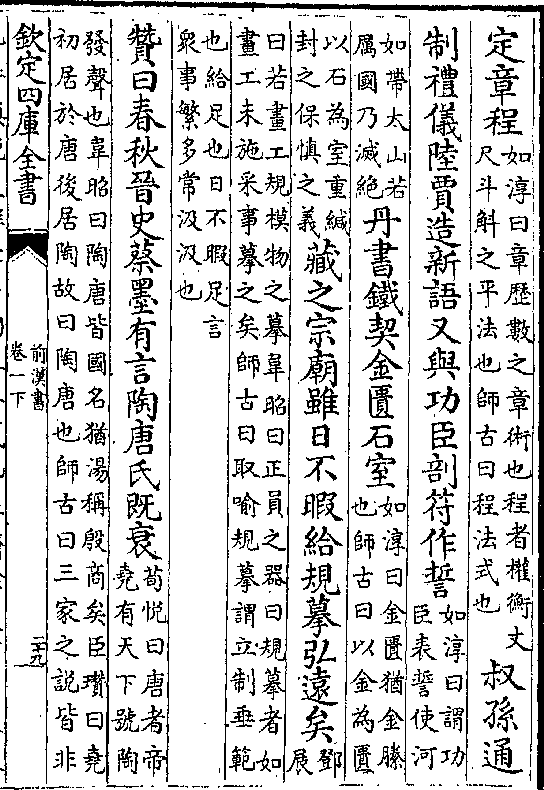 定章程如淳曰章歷數之章術也程者權衡丈尺斗斛之平法也師古曰程法式也叔孫通
制禮儀陸賈造新語又與功臣剖符作誓如淳曰謂功臣表誓使河
如帶太山若厲國乃滅絕丹書鐵契金匱石室如淳曰金匱猶金縢也師古曰以金為匱
以石為室重緘封之保慎之義藏之宗廟雖日不暇給規摹弘遠矣鄧展
曰若畫工規模物之摹韋昭曰正員之器曰規摹者如畫工未施采事摹之矣師古曰取喻規摹謂立制垂範
也給足也日不暇足言衆事繁多常汲汲也
贊曰春秋晉史蔡墨有言陶唐氏既衰荀悅曰唐者帝堯有天下號陶
發聲也韋昭曰陶唐皆國名猶湯稱殷商矣臣瓚曰堯初居於唐後居陶故曰陶唐也師古曰三家之說皆非
欽定四庫全書
前漢書
卷一下
二十九